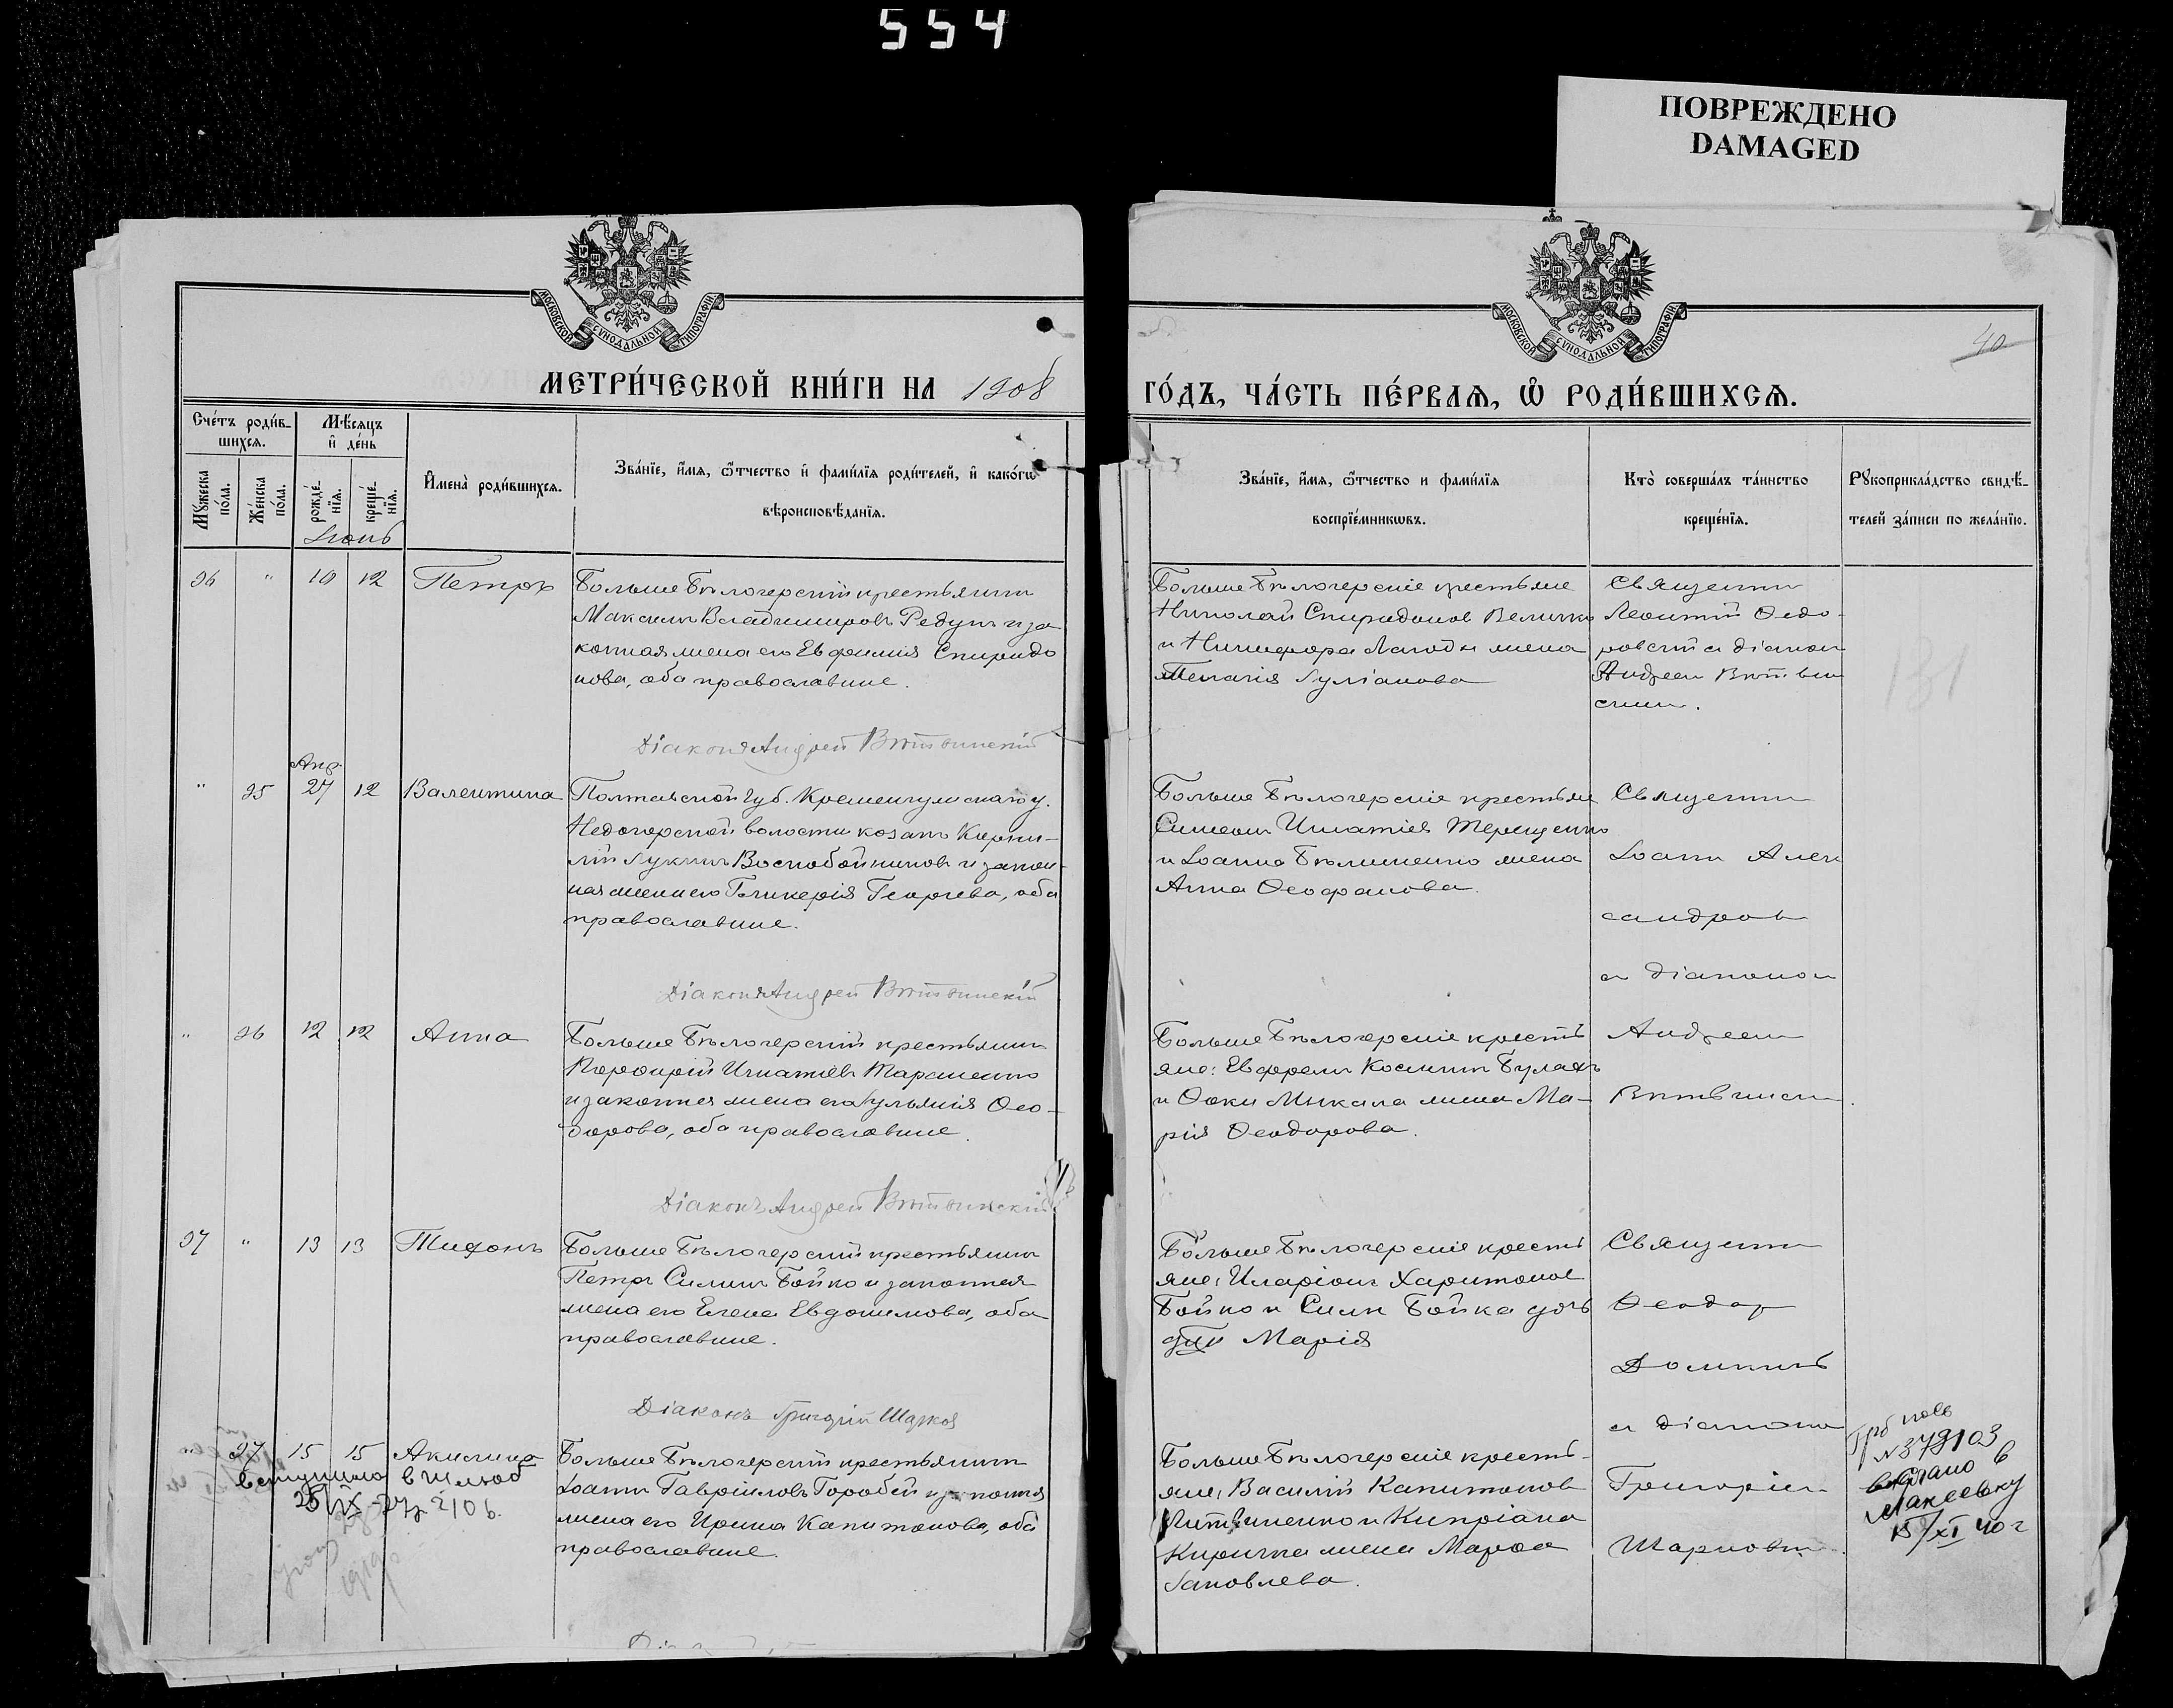 554
ПОВРЕЖДЕНО
DAMAGED
МОСКОВСКОЙ СУНОДАЛЬНОЙ ТИПОГРАФІИ
МОСКОВСКОЙ СУНОДАЛЬНОЙ ТИПОГРАФІИ
40
МЕТРИ́ЧЕСКОЙ КНИ́ГИ НА 1908
ГО́ДЪ, ЧА́СТЬ ПЕ́РВАЯ, Ѡ҆ РОДИ́ВШИХСЯ.
Сче́тъ роди́в-
шихся.
Мѣ́сяцъ
и҆ де́нь
Мꙋ́жеска
по́ла.
Же́нска
по́ла.
рожде́-
нїя.
креще́-
нїя.
Іюнь
И҆мена̀ роди́вшихся.
Зва́нїе, и҆́мя, ѻ҆́тчество и҆ фами́лїя роди́телей, и҆ како́гѡ
вѣроисповѣ́данїя.
Зва́нїе, и҆́мя, ѻ҆́тчество и фами́лїя
воспрїе́мникѡвъ.
Кто̀ соверша́лъ та́инство
креще́нїя.
Рꙋкоприкла́дство свидѣ́-
телей за́писи по жела́нїю.
26 " 10 12 Петръ
Больше Бѣлозерскій крестьянинъ
Максимъ Владимировъ Редунъ и за
конная жена его Евфимія Спиридо
нова, оба православные.
Діаконъ Андрей Витвинскій
Больше Бѣлозерскіе крестьяне
Николай Спиридоновъ Величко
и Никифора Лагоды жена
Пелагія Іуліанова
Священни
Леонтій Ѳедо-
ровскій съ діакон
Андреем Витвин
ским.
181
Апр.
" 25 27 12 Валентина
Полтавской губ. Кременчугскаго у.
Недогарской волости козакъ Корни-
лій Лукинъ Воскобойниковъ и закон-
ная жена его Гликерія Георгіева, оба
православные.
Діаконъ Андрей Витвинскій
Больше Бѣлозерскіе крестьяне
Симеонъ Игнатіев Терещенко
и Іоанна Бѣлименко жена
Анна Ѳеофанова.
Священни
Іоанн Алек
сандров
с діаконом
" 26 12 12 Анна
Больше Бѣлозерскій крестьянинъ
Порфирій Игнатіевъ Тараненко
и законная жена его Іульянія Ѳео-
дорова, оба православные.
Діаконъ Андрей Витвинскій
Больше Бѣлозерскіе кресть
яне: Евфрем Космин Булахъ
и Ѳоки Микала жена Ма-
рія Ѳеодорова.
Андреем
Витвинским.
27 " 13 13 Тихонъ
Больше Бѣлозерскій крестьянинъ
Петръ Силинъ Бойко и законная
жена его Елена Евдокимова, оба
православные.
Діаконъ Григорій Шарков
Больше Бѣлозерскіе кресть
яне: Иларіонъ Харитонов
Бойко и Силы Бойка дочь
Марія
Священни
Ѳеодор
с діаконом
" 27 15 15 Акилина
Больше Бѣлозерскій крестьянинъ
Іоаннъ Гавріиловъ Горобей и законная
жена его Ирина Капитонова, оба
православные.
вступила в шлюб
Больше Бѣлозерскіе кресть-
яне: Василій Капитонов
Литвиненко и Кипріана
Кирички жена Марѳа
Іаковлева.
Григоріем
Шарковым.
№ 379103
в
Макеевку
15/XI 40 г